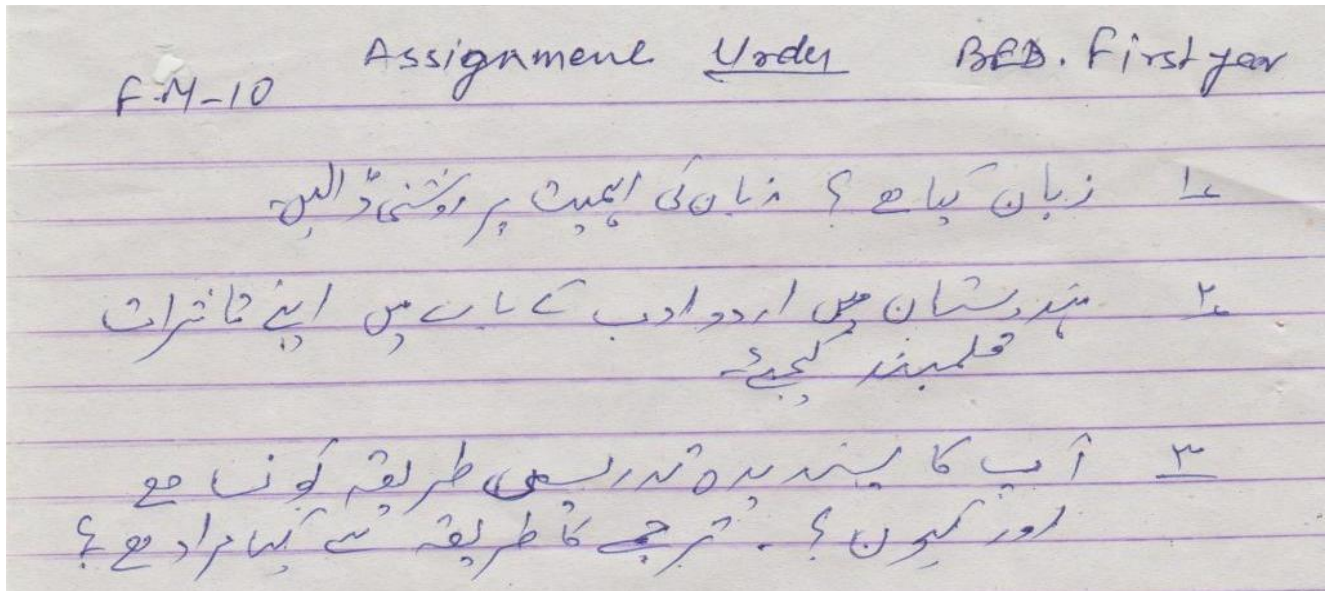 Assignment Urdu BED. First year
F.M-10
۱؎ زبان کیا ہے ؟ زبان کی اہمیت پر روشنی ڈالیں۔
۲؎ ہندوستان میں اردو ادب کے باب میں اپنے تاثرات
قلمبند کیجئے۔
۳ آپ کا پسندیدہ تدریسی طریقہ کونسا ہے
اور کیوں ؟ ۔ ترجمے کا طریقہ سے کیا مراد ہے ؟